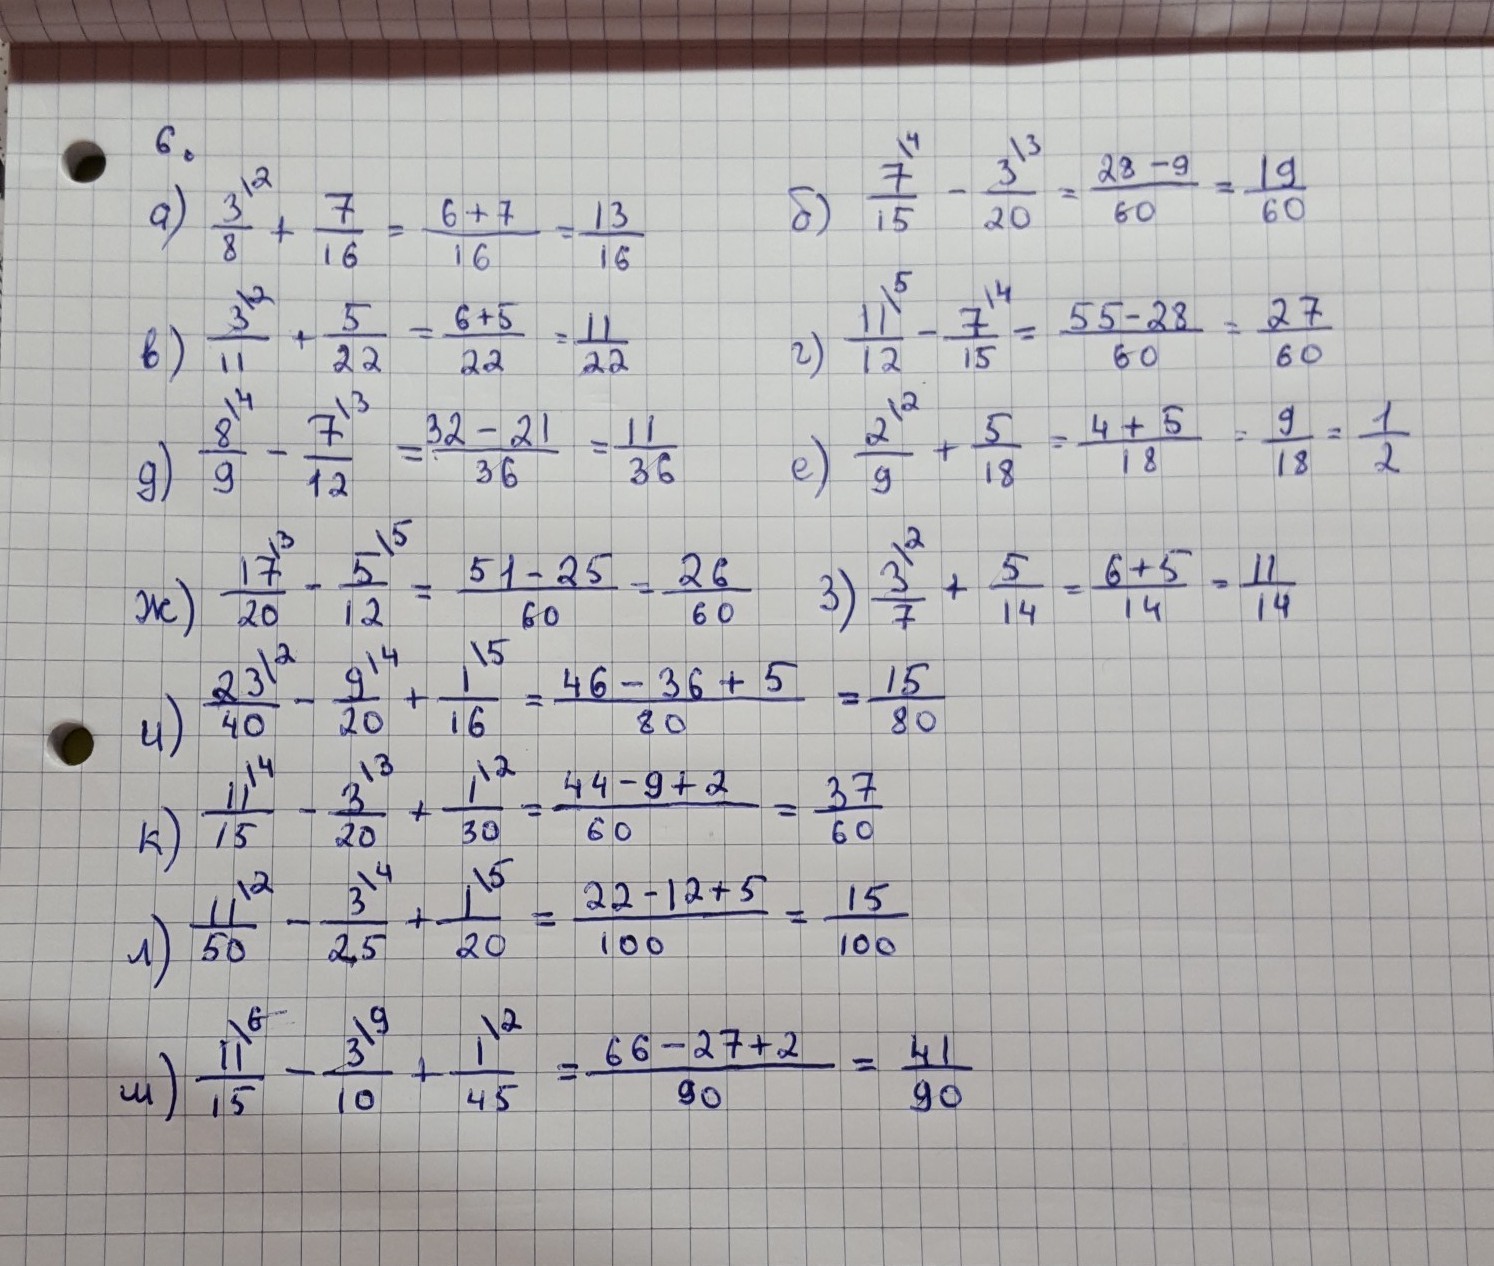 6.
а) 3\2/8 + 7/16 = 6+7/16 = 13/16
б) 7\4/15 - 3\3/20 = 28-9/60 = 19/60
в) 3\2/11 + 5/22 = 6+5/22 = 11/22
г) 11\5/12 - 7\4/15 = 55-28/60 = 27/60
д) 8\4/9 - 7\3/12 = 32-21/36 = 11/36
е) 2\2/9 + 5/18 = 4+5/18 = 9/18 = 1/2
ж) 17\3/20 - 5\5/12 = 51-25/60 = 26/60
з) 3\2/7 + 5/14 = 6+5/14 = 11/14
и) 23\2/40 - 9\4/20 + 1\5/16 = 46-36+5/80 = 15/80
к) 11\4/15 - 3\3/20 + 1\2/30 = 44-9+2/60 = 37/60
л) 11\2/50 - 3\4/25 + 1\5/20 = 22-12+5/100 = 15/100
м) 11\6/15 - 3\9/10 + 1\2/45 = 66-27+2/90 = 41/90